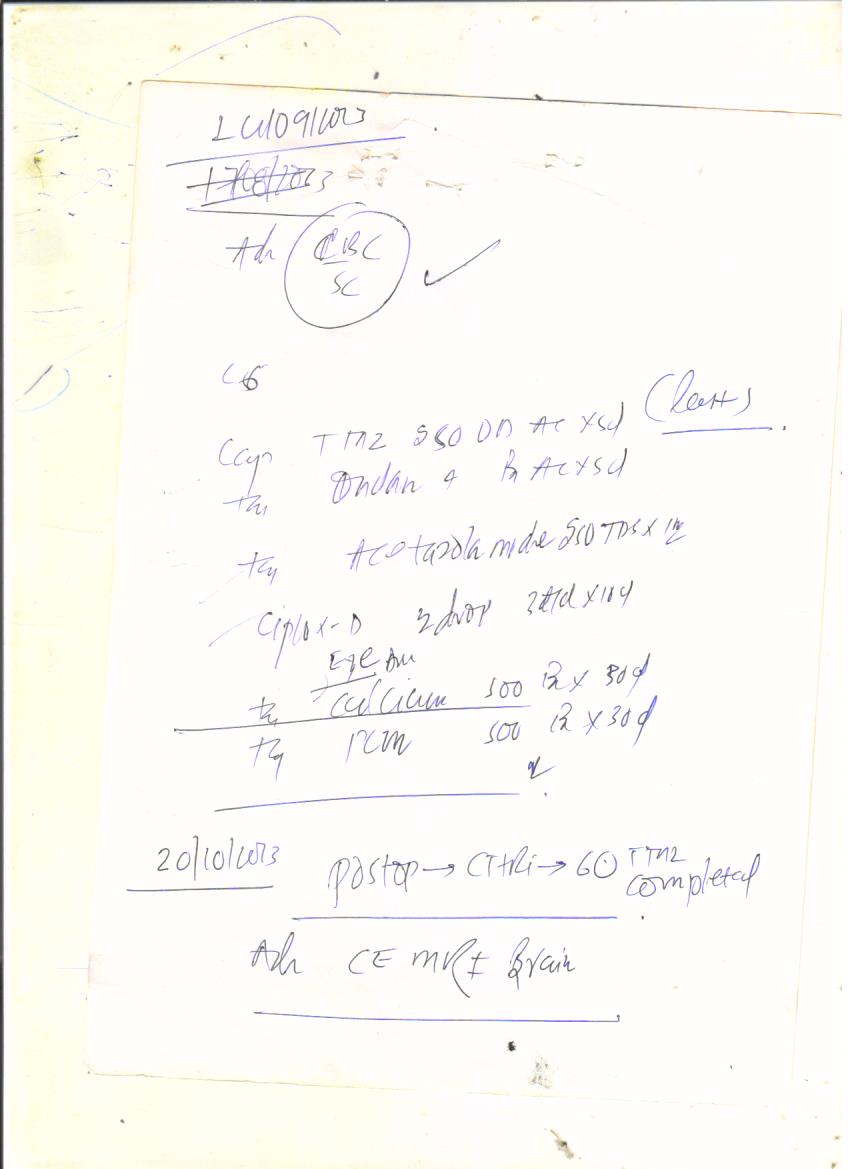 17/08/2023
Adv CBC
SC
C6
Cap TMZ 350 OD AC x5d (last)
Tab Ondan 4 Bd AC x5d
Tab Acetazolamide 250 TDS x
Ciplox-D 2 drop x10d
Eye
Tab calcium 500 Bd x 30d
Tab PCM 500 Bd x 30d
20/10/2023 postop → CTHRT → 6 TMZ
completed
Adv CE MRI Brain